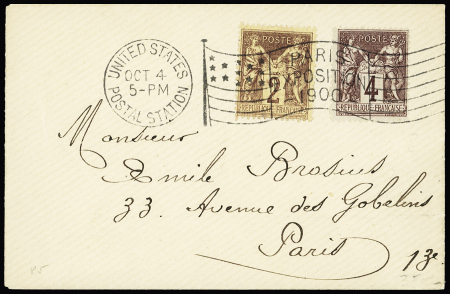 UNITED STATES
OCT 4
5-PM
POSTAL STATION
PARIS
EXPOSITION
1900
POSTE
2
REPUBLIQUE FRANÇAISE
POSTE
4
REPUBLIQUE FRANÇAISE
Monsieur
Emile Brosius
33. Avenue des Gobelins
Paris 13e